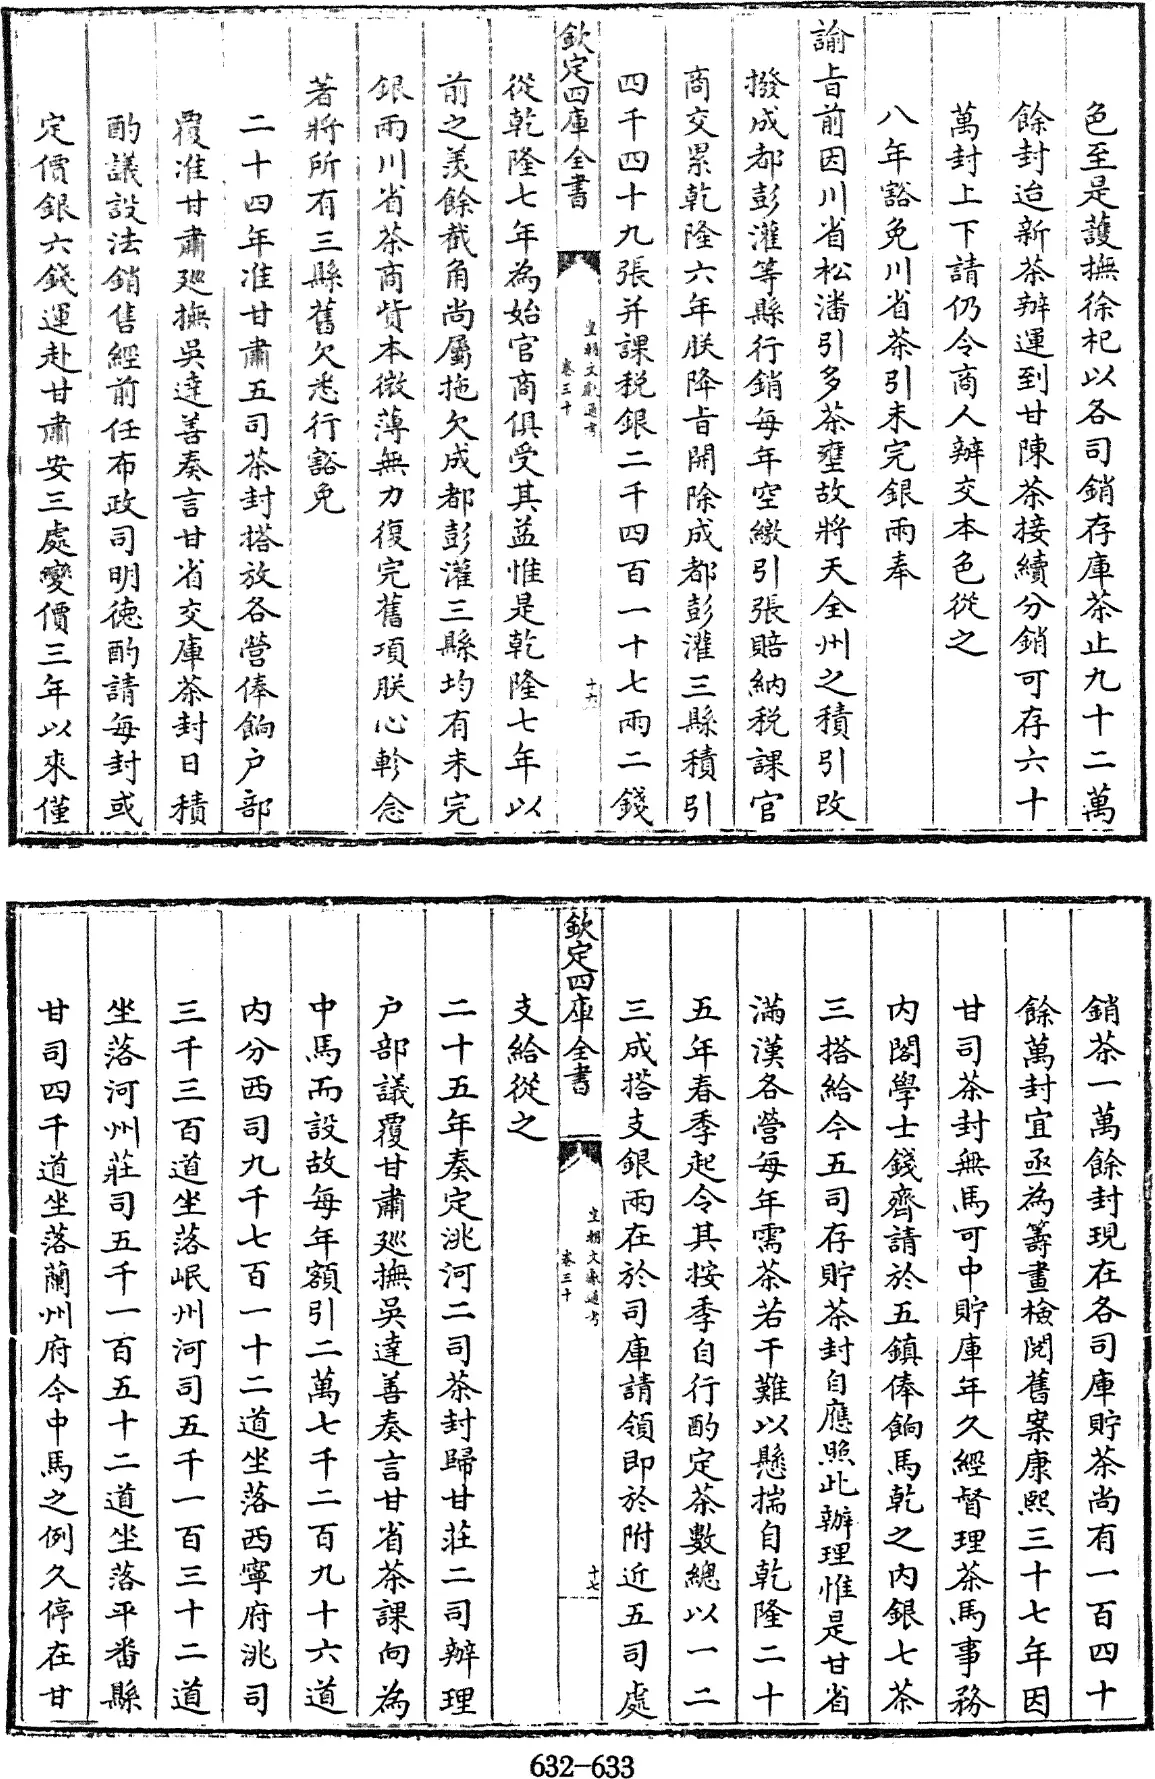 色至是護撫徐杞以各司銷存庫茶止九十二萬
餘封迨新茶辦運到甘陳茶接續分銷可存六十
萬封上下請仍令商人辦交本色從之
八年豁免川省茶引未完銀兩奉
諭㫖前因川省松潘引多茶壅故將天全州之積引改
撥成都彭灌等縣行銷每年空繳引張賠納稅課官
商交累乾隆六年朕降㫖開除成都彭灌三縣積引
四千四十九張并課稅銀二千四百一十七兩二錢
欽定四庫全書
皇朝文獻通考
卷三十
十六
從乾隆七年為始官商俱受其益惟是乾隆七年以
前之羡餘截角尚屬拖欠成都彭灌三縣均有未完
銀兩川省茶商貲本微薄無力復完舊項朕心軫念
著將所有三縣舊欠悉行豁免
二十四年准甘肅五司茶封搭放各營俸餉户部
覆准甘肅廵撫吳達善奏言甘省交庫茶封日積
酌議設法銷售經前任布政司明德酌請每封或
定價銀六錢運赴甘肅安三處變價三年以來僅
銷茶一萬餘封現在各司庫貯茶尚有一百四十
餘萬封宜亟為籌畫檢閲舊案康熙三十七年因
甘司茶封無馬可中貯庫年久經督理茶馬事務
内閣學士錢齊請於五鎮俸餉馬乾之内銀七茶
三搭給今五司存貯茶封自應照此辦理惟是甘省
滿漢各營每年需茶若干難以懸揣自乾隆二十
五年春季起令其按季自行酌定茶數總以一二
三成搭支銀兩在於司庫請領即於附近五司處
欽定四庫全書
皇朝文獻通考
卷三十
十七
支給從之
二十五年奏定洮河二司茶封歸甘莊二司辦理
户部議覆甘肅廵撫吳達善奏言甘省茶課向為
中馬而設故每年額引二萬七千二百九十六道
内分西司九千七百一十二道坐落西寧府洮司
三千三百道坐落岷州河司五千一百三十二道
坐落河州莊司五千一百五十二道坐落平番縣
甘司四千道坐落蘭州府今中馬之例久停在甘
632-633